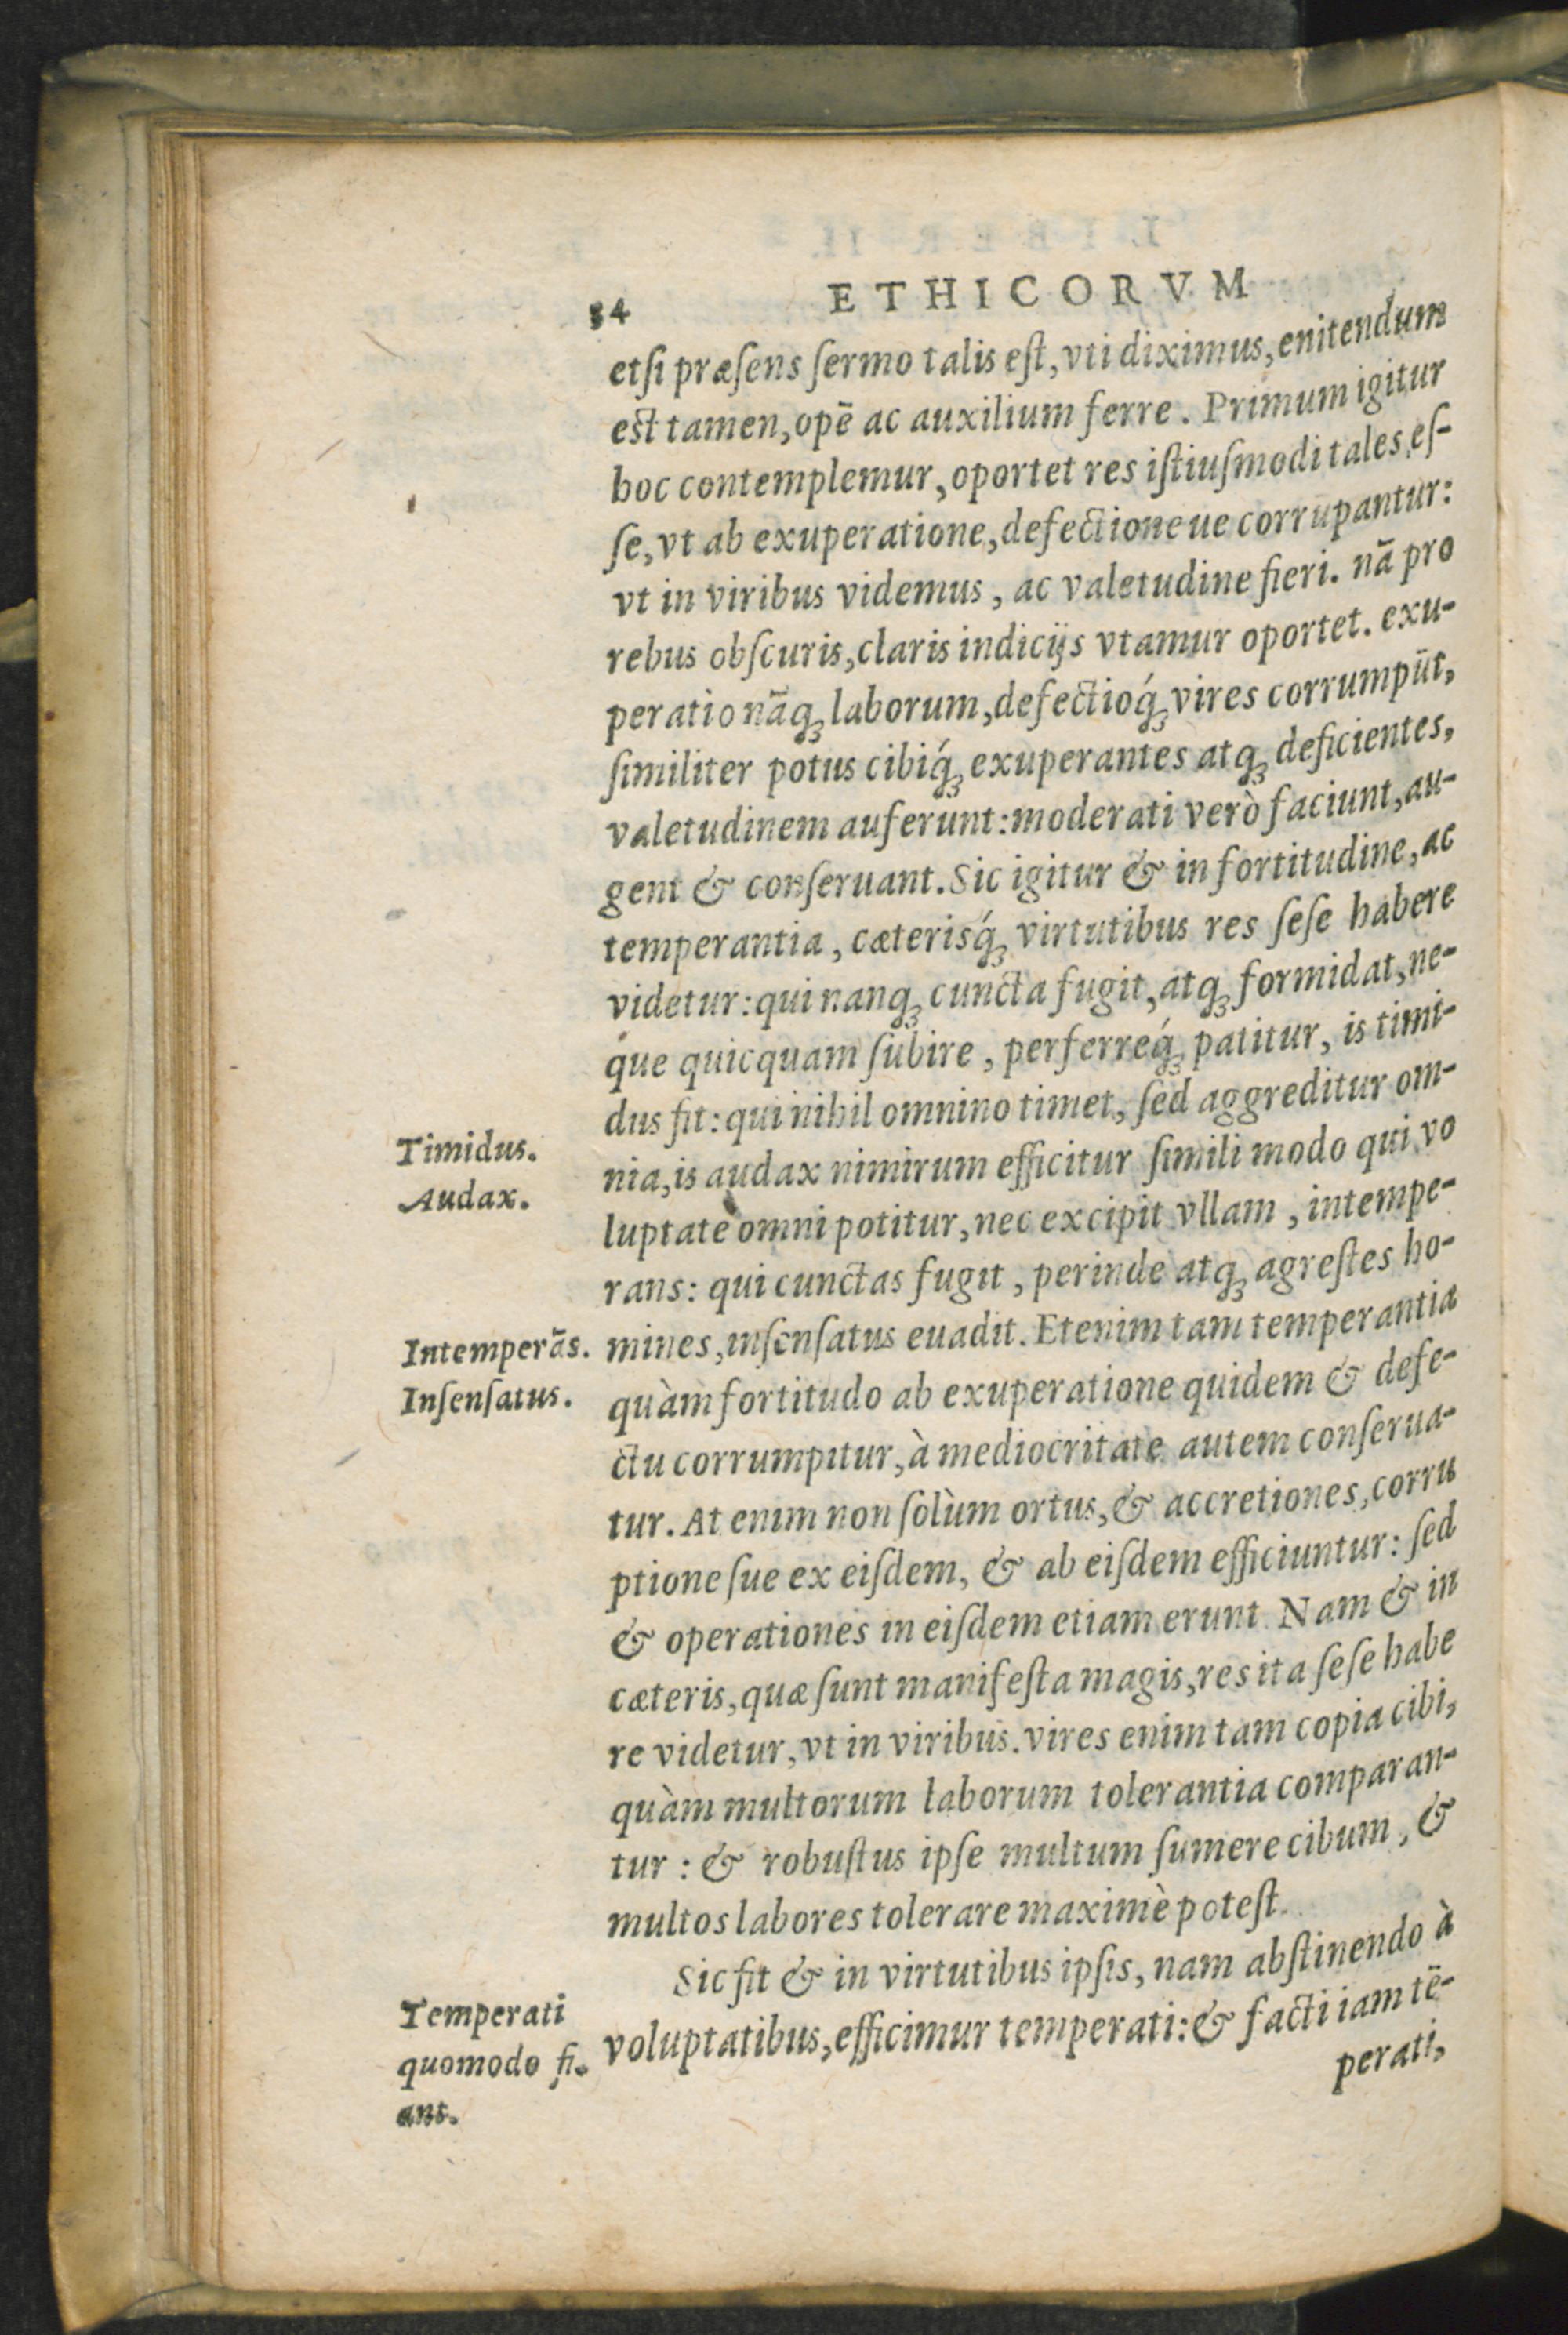 54 ETHICORVM
etſi præſens ſermo talis eſt, vti diximus, enitendum
eſt tamen, opē ac auxilium ferre. Primum igitur
hoc contemplemur, oportet res iſtiuſmodi tales eſ-
ſe, vt ab exuperatione, defectioneue corrupantur:
vt in viribus videmus, ac valetudine fieri. nā pro
rebus obſcuris, claris indicijs vtamur oportet. exu-
peratio nāq; laborum, defectioq́; vires corrumpūt,
ſimiliter potus cibiq́; exuperantes atq; deficientes,
valetudinem auferunt: moderati verò faciunt, au-
gent & conſeruant. Sic igitur & in fortitudine, ac
temperantia, cæterisq́; virtutibus res ſeſe habere
videtur: qui nanq; cuncta fugit, atq; formidat, ne-
que quicquam ſubire, perferreq́; patitur, is timi-
dus fit: qui nihil omnino timet, ſed aggreditur om-
Timidus.
nia, is audax nimirum efficitur ſimili modo qui vo
Audax.
luptate omni potitur, nec excipit vllam, intempe-
rans: qui cunctas fugit, perinde atq; agreſtes ho-
Intemperās.
mines, inſenſatus euadit. Etenim tam temperantia
Inſenſatus.
quàm fortitudo ab exuperatione quidem & defe-
ctu corrumpitur, à mediocritate autem conſerua-
tur. At enim non ſolùm ortus, & accretiones, corru
ptioneſue ex eiſdem, & ab eiſdem efficiuntur: ſed
& operationes in eiſdem etiam erunt Nam & in
cæteris, quæ ſunt manifeſta magis, res ita ſeſe habe
re videtur, vt in viribus. vires enim tam copia cibi,
quàm multorum laborum tolerantia comparan-
tur: & robuſtus ipſe multum ſumere cibum, &
multos labores tolerare maximè poteſt.
Sic fit & in virtutibus ipſis, nam abſtinendo à
Temperati
voluptatibus, efficimur temperati: & facti iam tē-
quomodo fi-
ant.
perati,